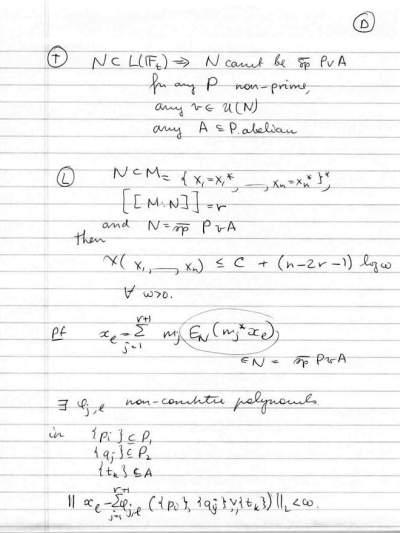 D
T N ⊂ L(F_t) ⇒ N cannot be s̄p̄ P v A
for any P non-prime,
any v ∈ U(N)
any A ⊆ P. abelian
L N ⊂ M = { x_1 = x_1*, —, x_n = x_n* }",
[[M:N]] = r
and N = s̄p̄ P v A
then
χ( x_1, —, x_n) ≤ C + (n-2r-1) log ω
∀ ω>0.
Pf x_e = Σ_{j=1}^{r+1} m_j E_N(m_j* x_e),
∈ N = s̄p̄ P v A
∃ φ_{j,e} polynomials
in {p_i} ⊆ P_1
{q_j} ⊆ P_2
{t_k} ⊆ A
|| x_e - Σ_{j=1}^{r+1} φ_{j,e} ({p_i}, {q_j}, v, {t_k}) ||_2 < ω.